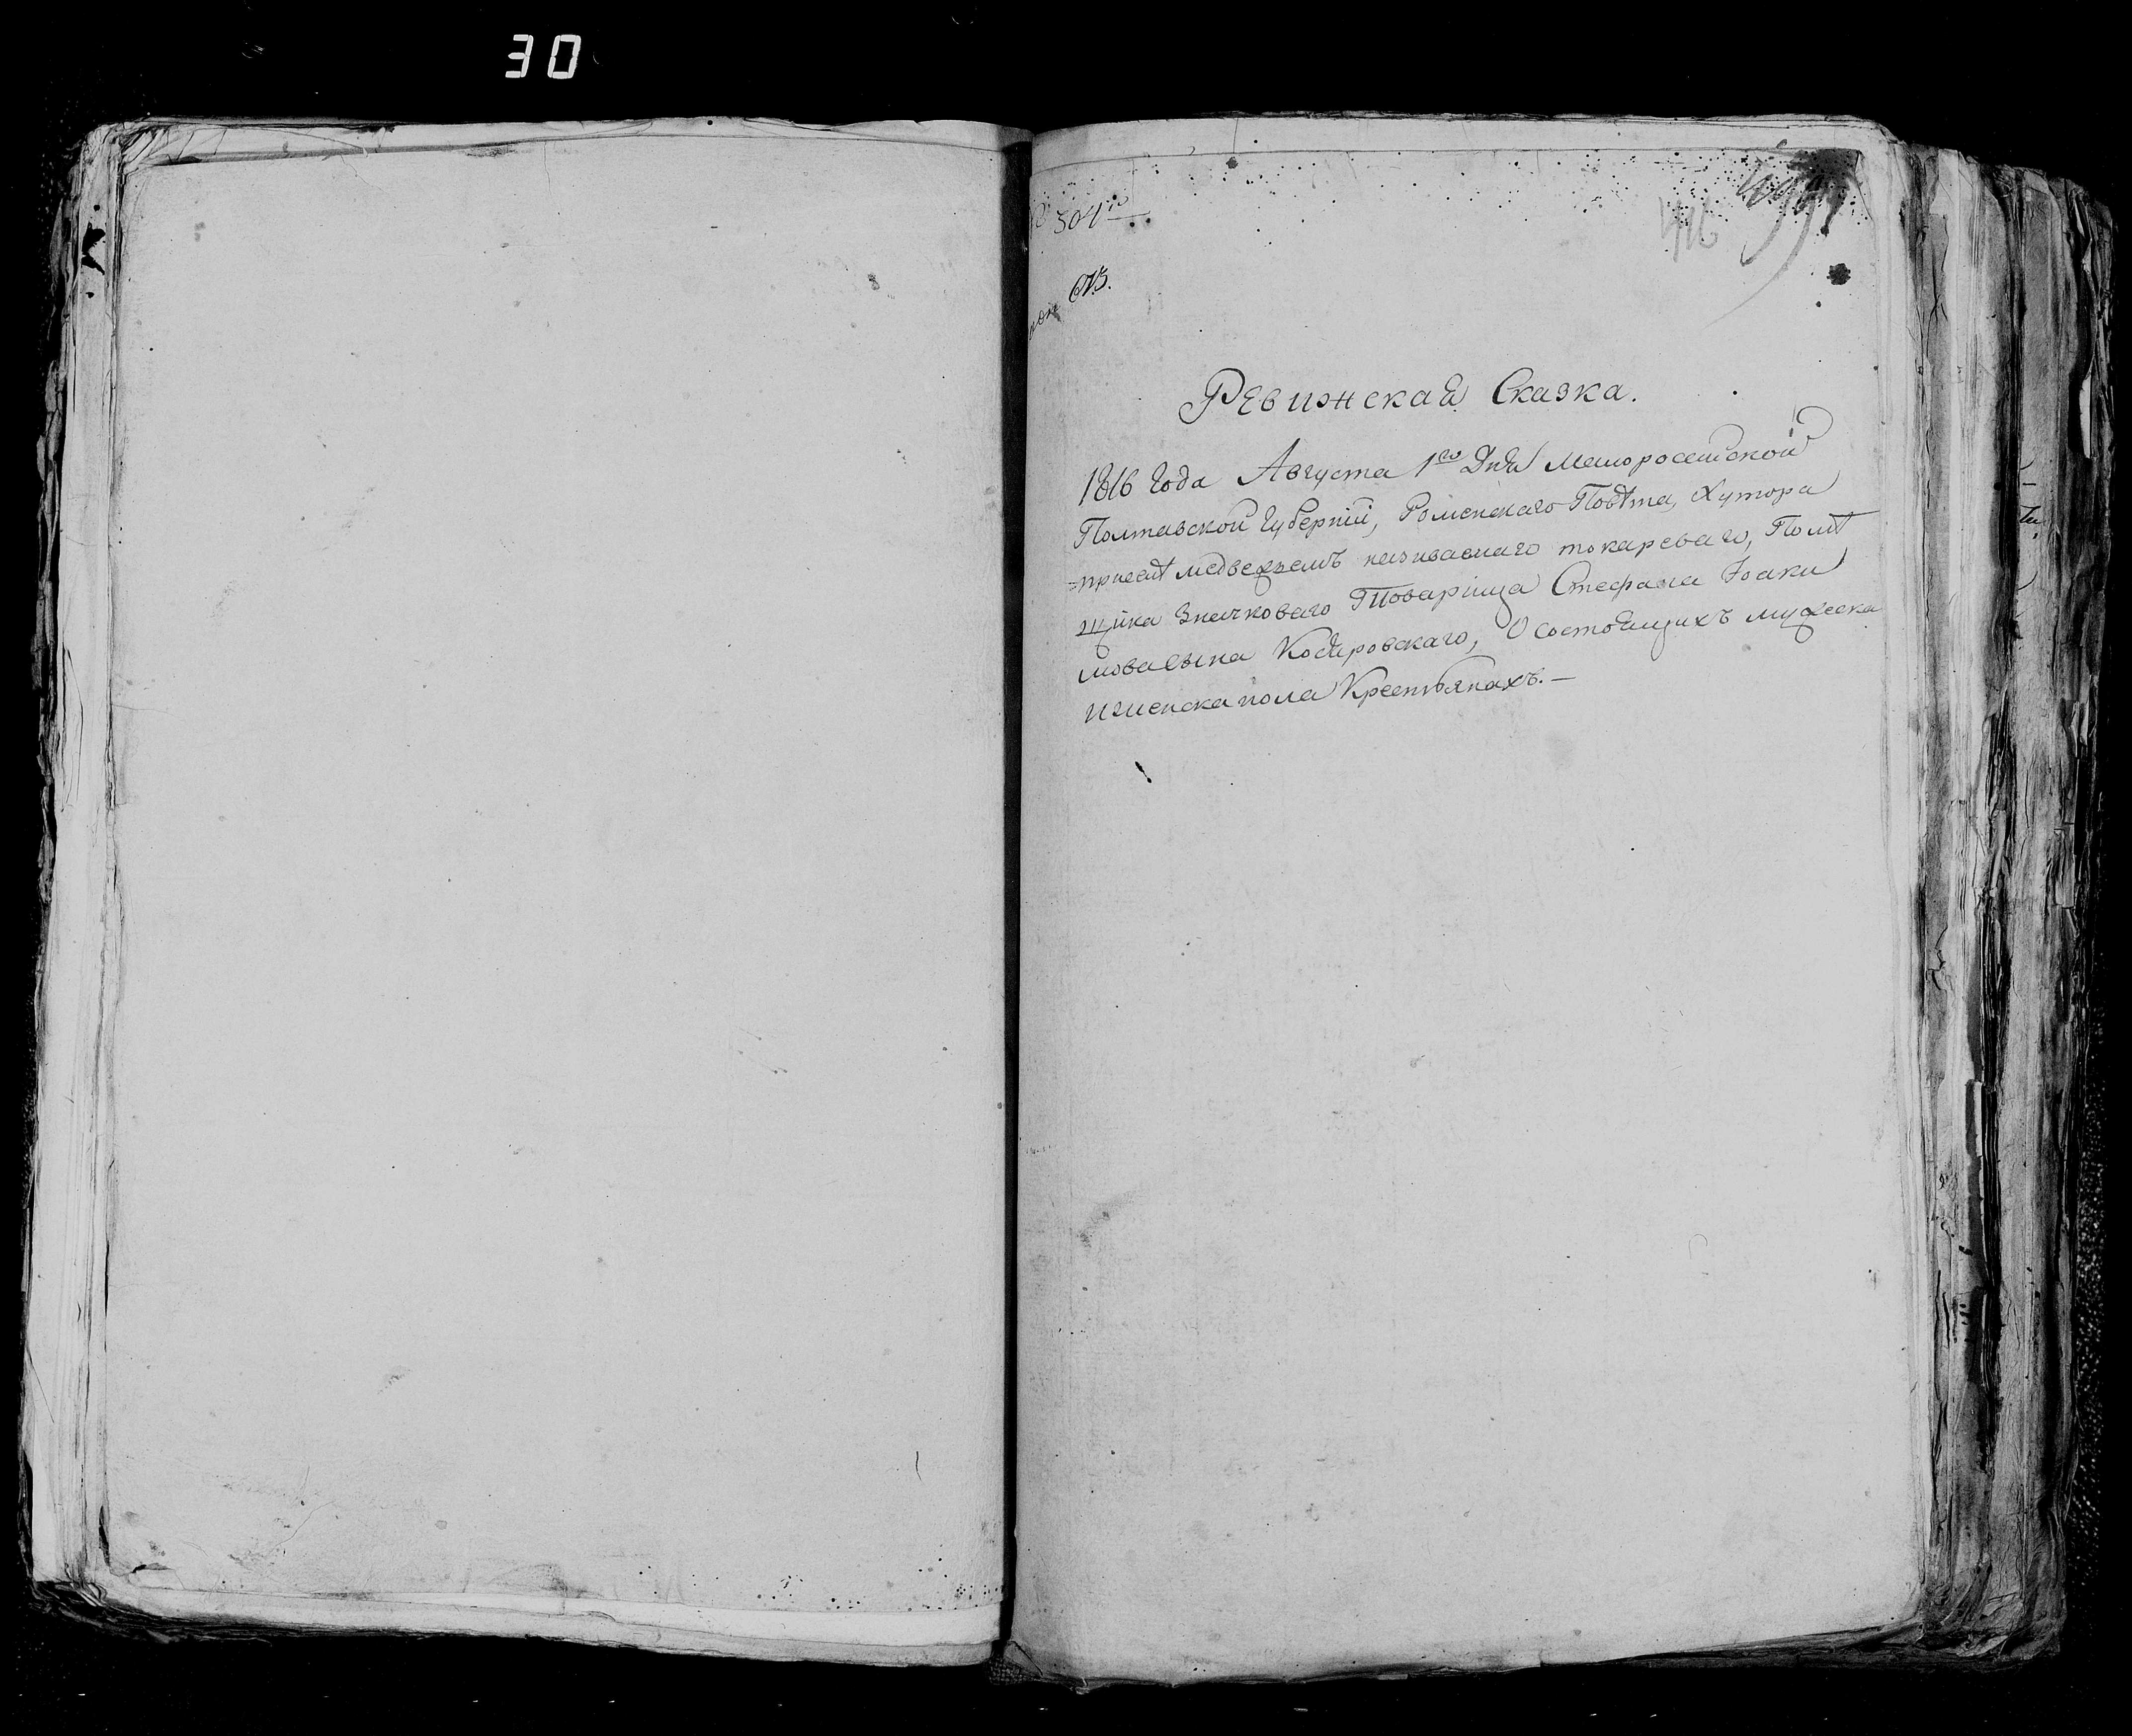 30
504го
Ревижская Сказка.
1816 Года Августа 1го Дня Малоросейской
Полтавской Губернии, Роменскаго Повѣта, Хутора
приселѣ медвежемъ называемаго токареваго, Помѣ
щика Значковаго Товарища Стефана Іоаки
мова сына Кодировскаго, О состоящихъ мужеска
и женска пола Крестьянахъ.—